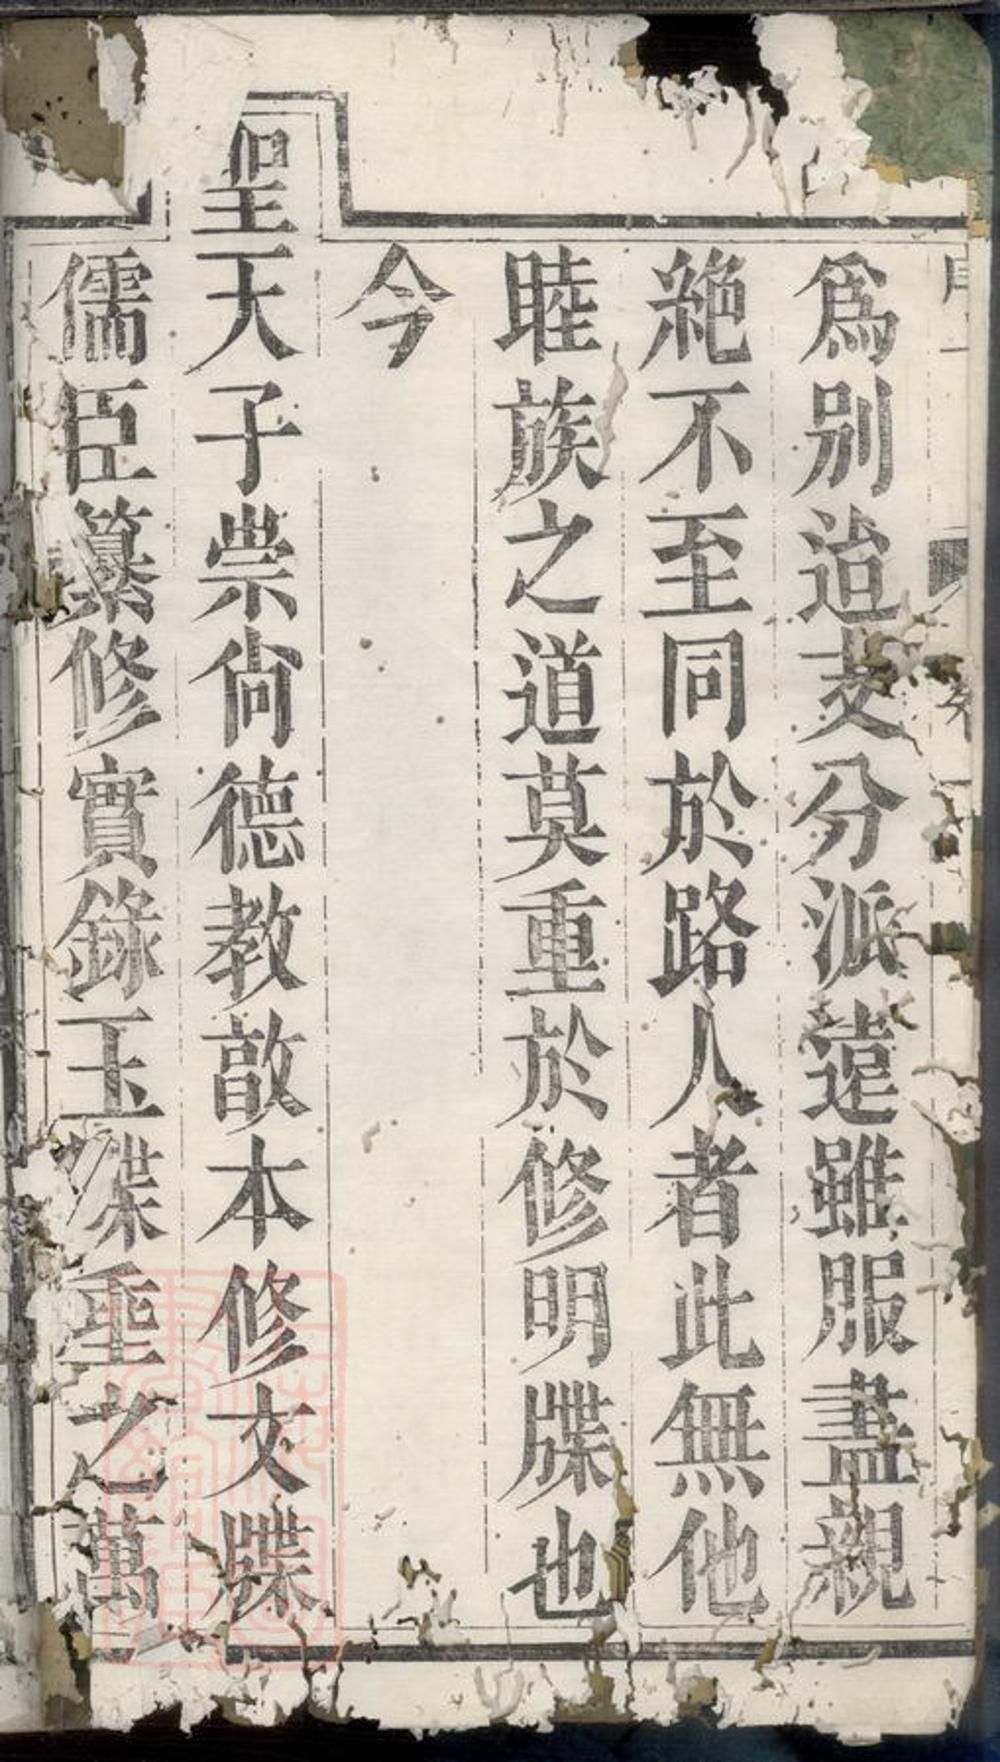 爲别迨支分派遠雖服盡親
絶不至同於路人者此無他
睦族之道莫重於修明牒也
今
聖天子崇尚德教敦本修文牒
儒臣纂修實錄玉牒垂之萬